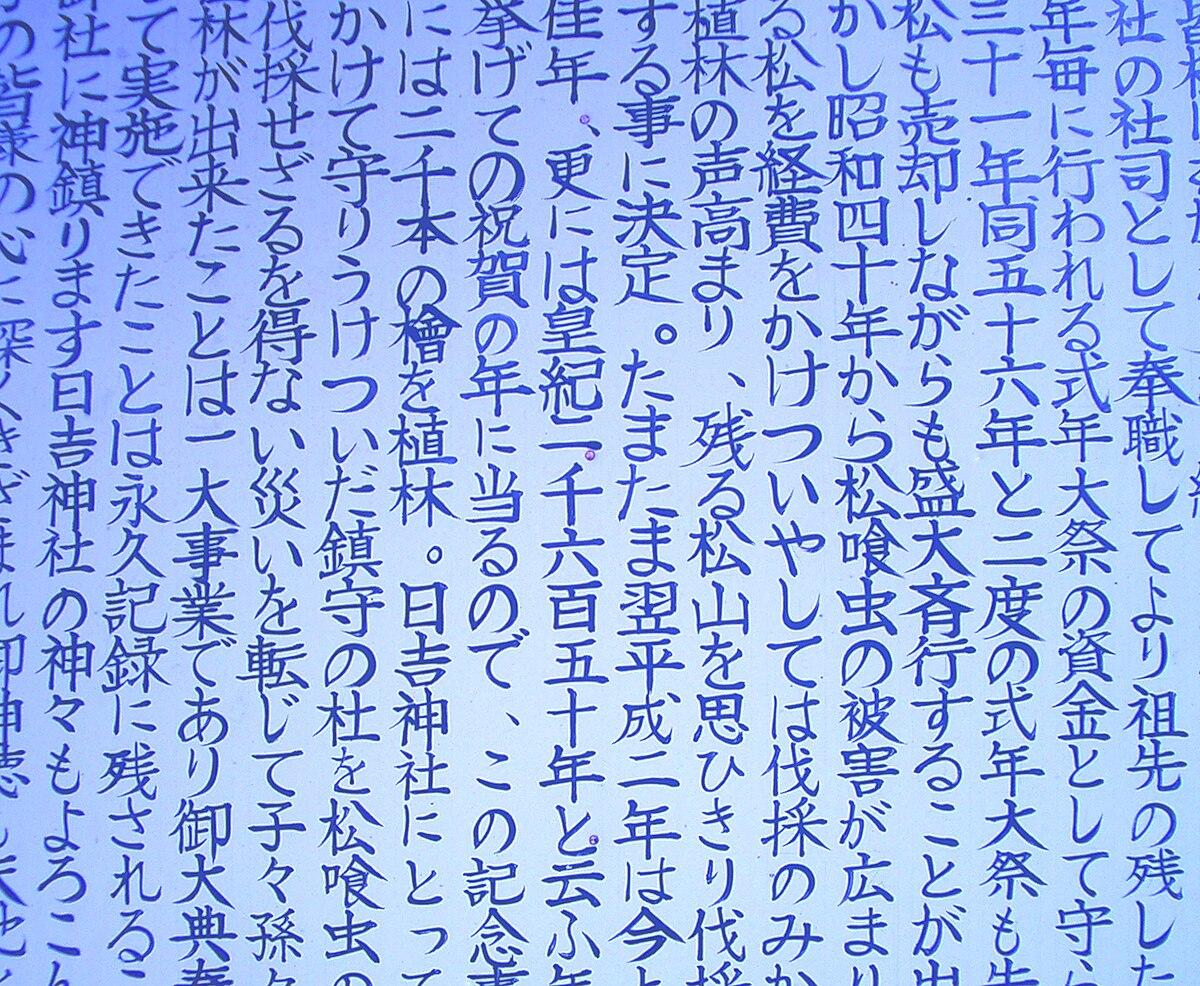 社の社司として奉職してより祖先の残した
年毎に行われる式年大祭の資金として守ら
三十一年同五十六年と二度の式年大祭も
松も売却しながらも盛大斉行することが出
かし昭和四十年から松喰虫の被害が広まり
る松を経費をかけついやしては伐採のみか
植林の声高まり、残る松山を思ひきり伐採
する事に決定。たまたま翌平成二年は今上
佳年、更には皇紀二千六百五十年と云ふ年
挙げての祝賀の年に当るので、この記念事
には二千本の檜を植林。日吉神社にとって
かけて守りうけついだ鎮守の杜を松喰虫の
伐採せざるを得ない災いを転じて子々孫々
林が出来たことは一大事業であり御大典奉
て実施できたことは永久記録に残されるこ
御社に神鎮ります日吉神社の神々もよろこん
の皆様の心に深くきざまれ御神徳